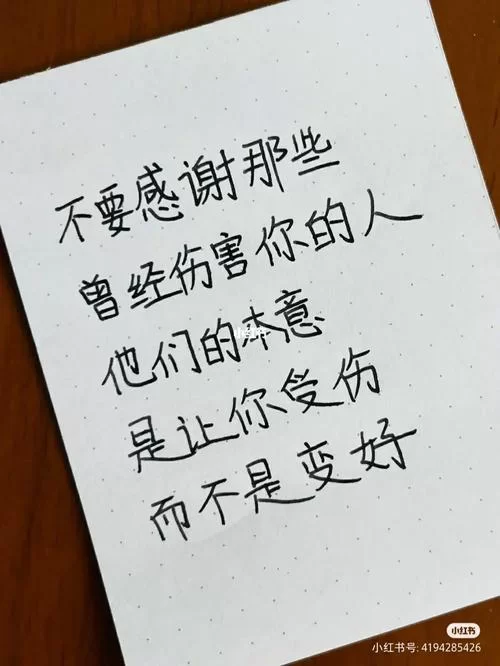 不要感谢那些
曾经伤害你的人
他们的本意
小红书
是让你受伤
而不是变好
小红书
小红书号: 4194285426